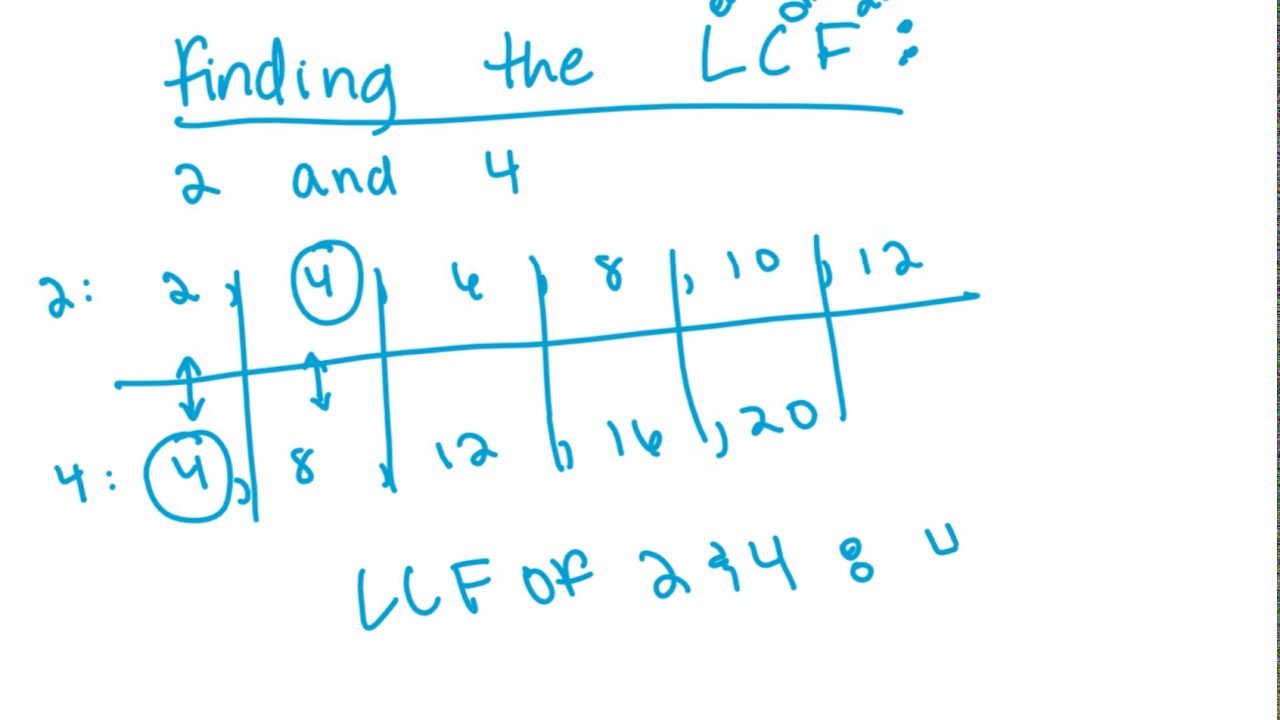 finding the LCF:
2 and 4
2: 2, 4, 6, 8, 10, 12
4: 4, 8, 12, 16, 20
LCF OF 2 & 4 :